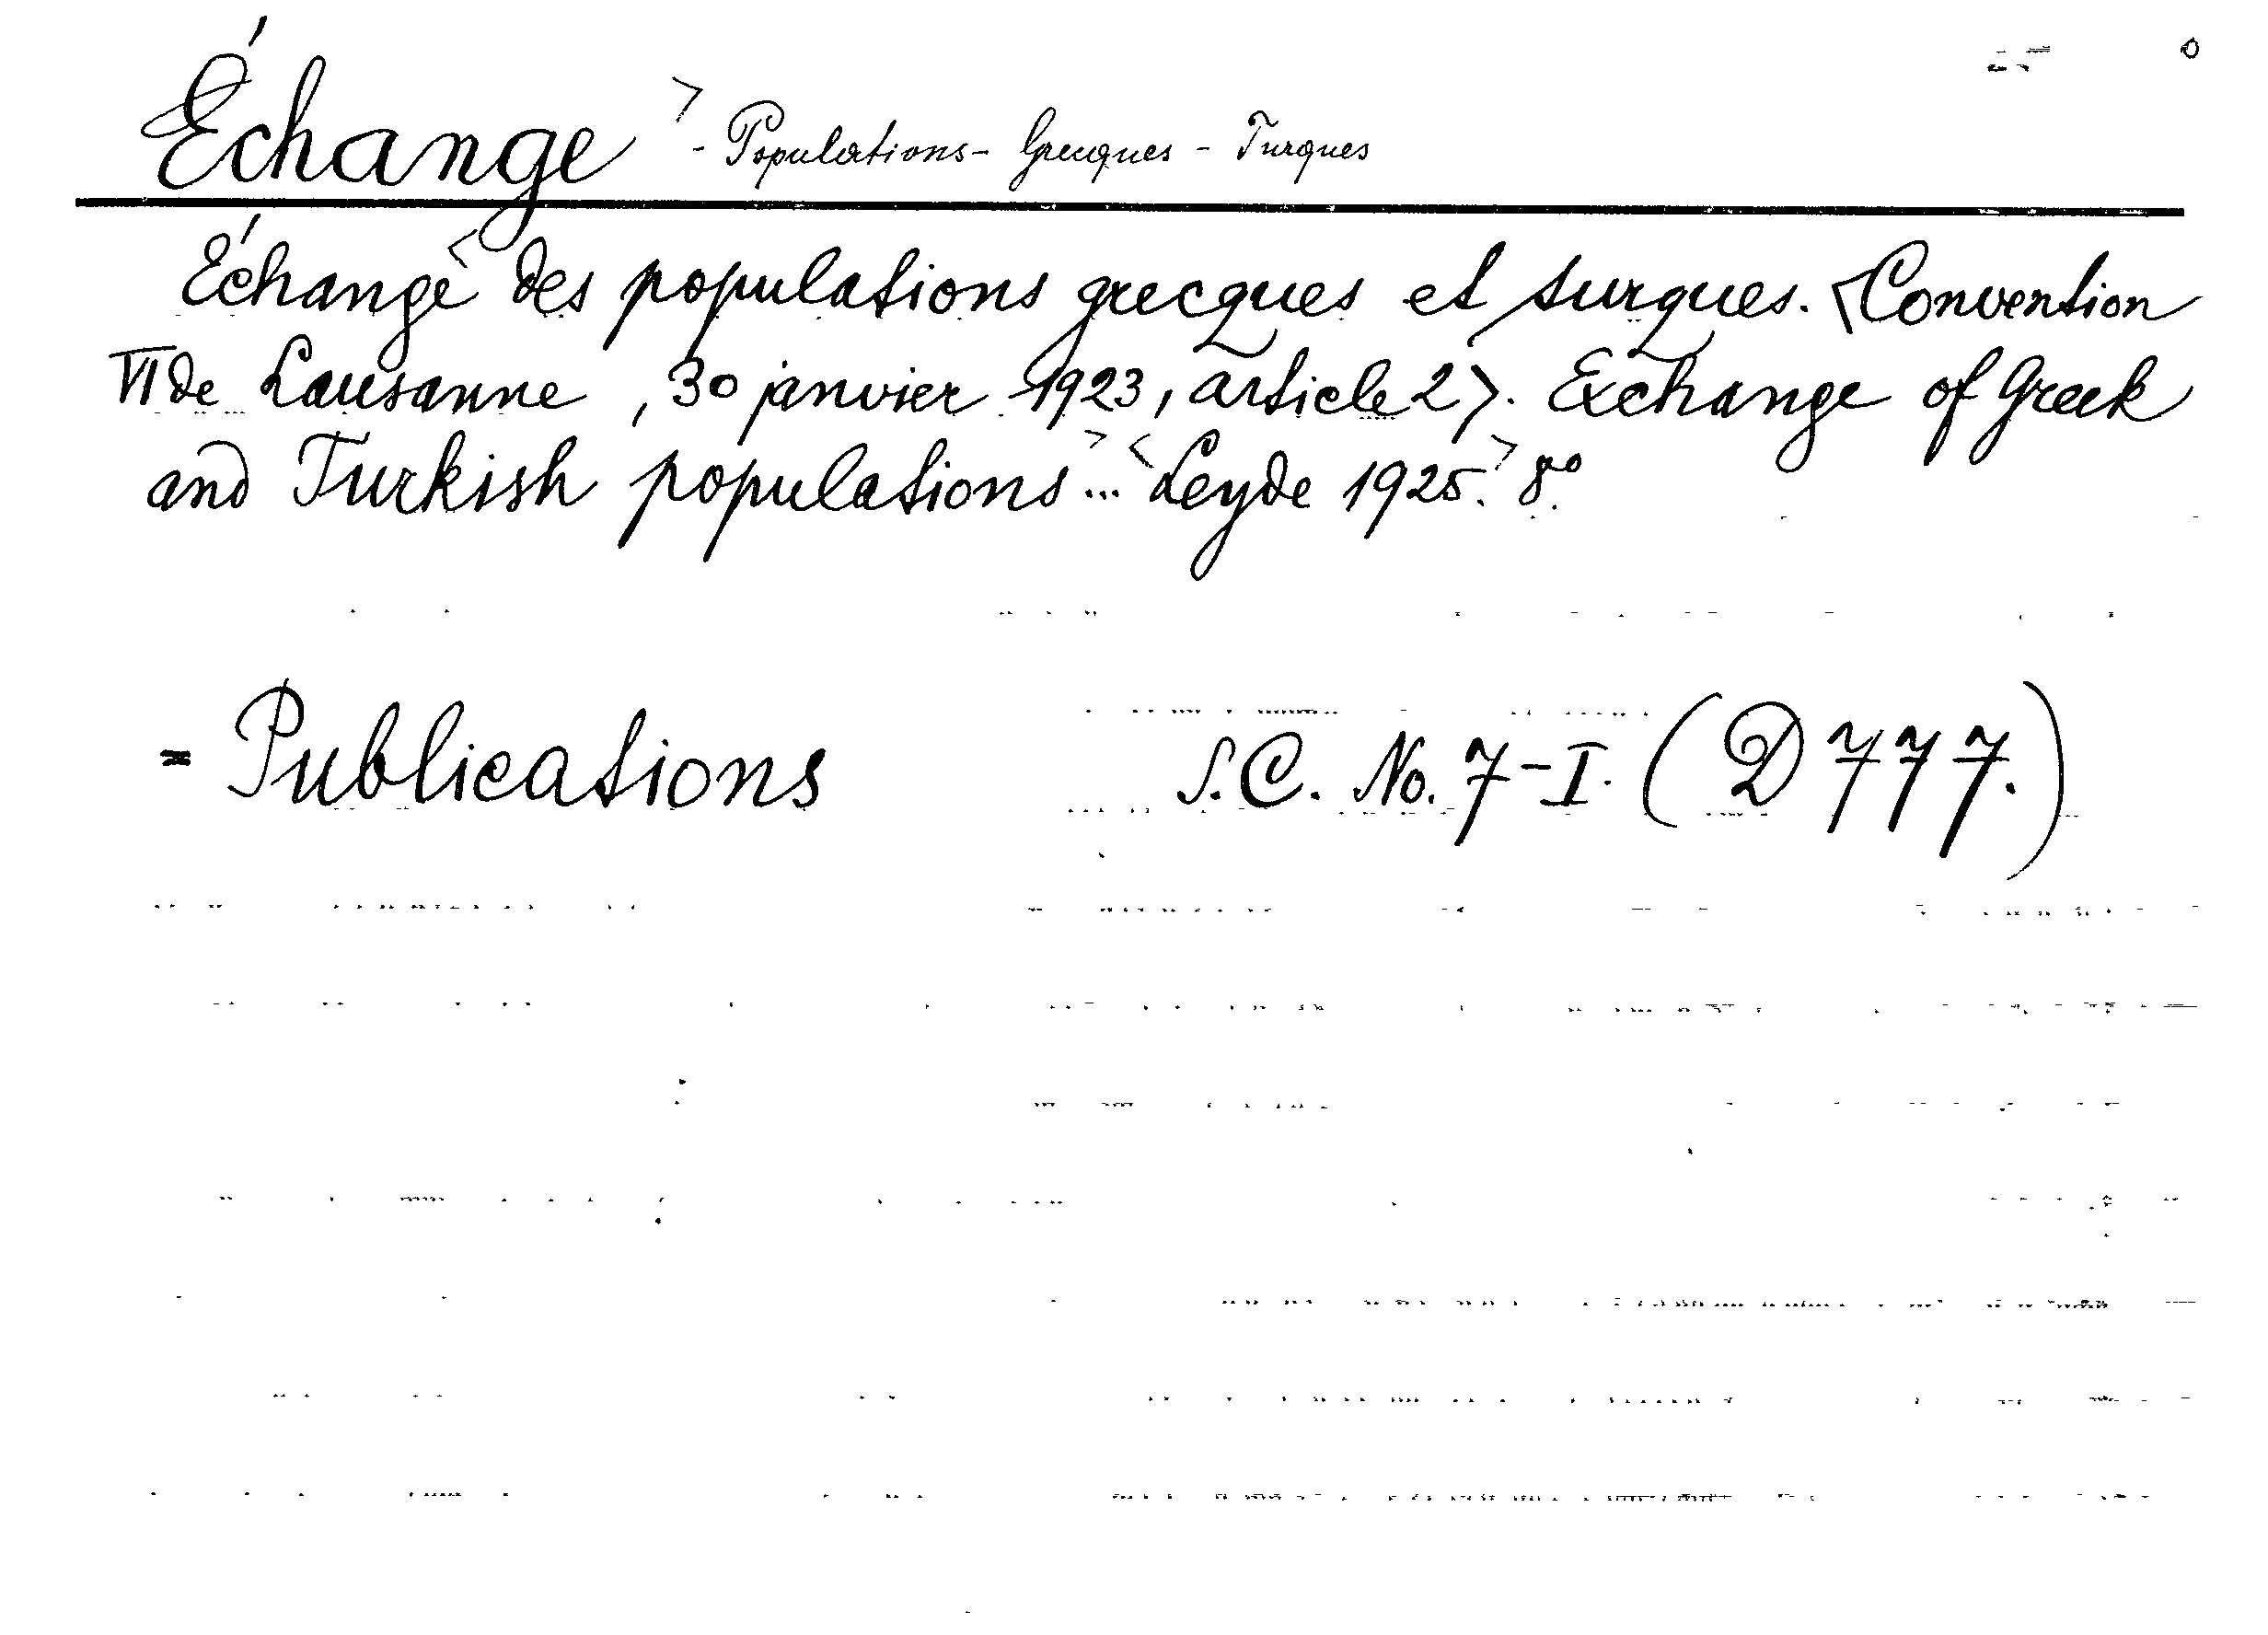 Échange - Populations - Grecques - Turques
Échange des populations grecques et turques. <Convention
VI de Lausanne, 30 janvier 1923, article 2>. Exchange of Greek
and Turkish populations... Leyde 1925. 8°.
= Publications S.C. No. 7-I. (D 777.)